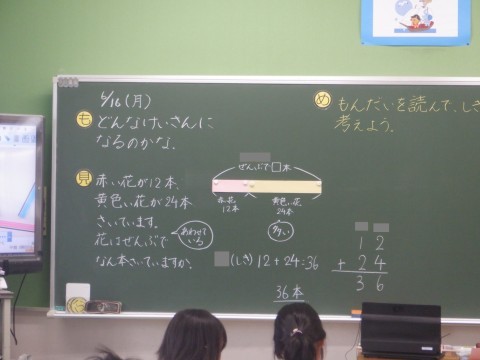 6/16(月)
も どんなけいさんに
なるのかな。
見 赤い花が12本、
黄色い花が24本
さいています。
花はぜんぶで
なん本さいていますか。
あわせて
いる
ぜんぶで□本
赤花
12本
黄色い花
24本
多い
(しき) 12+24=36
36本
め もんだいを読んで、しき
考えよう。
12
+24
36